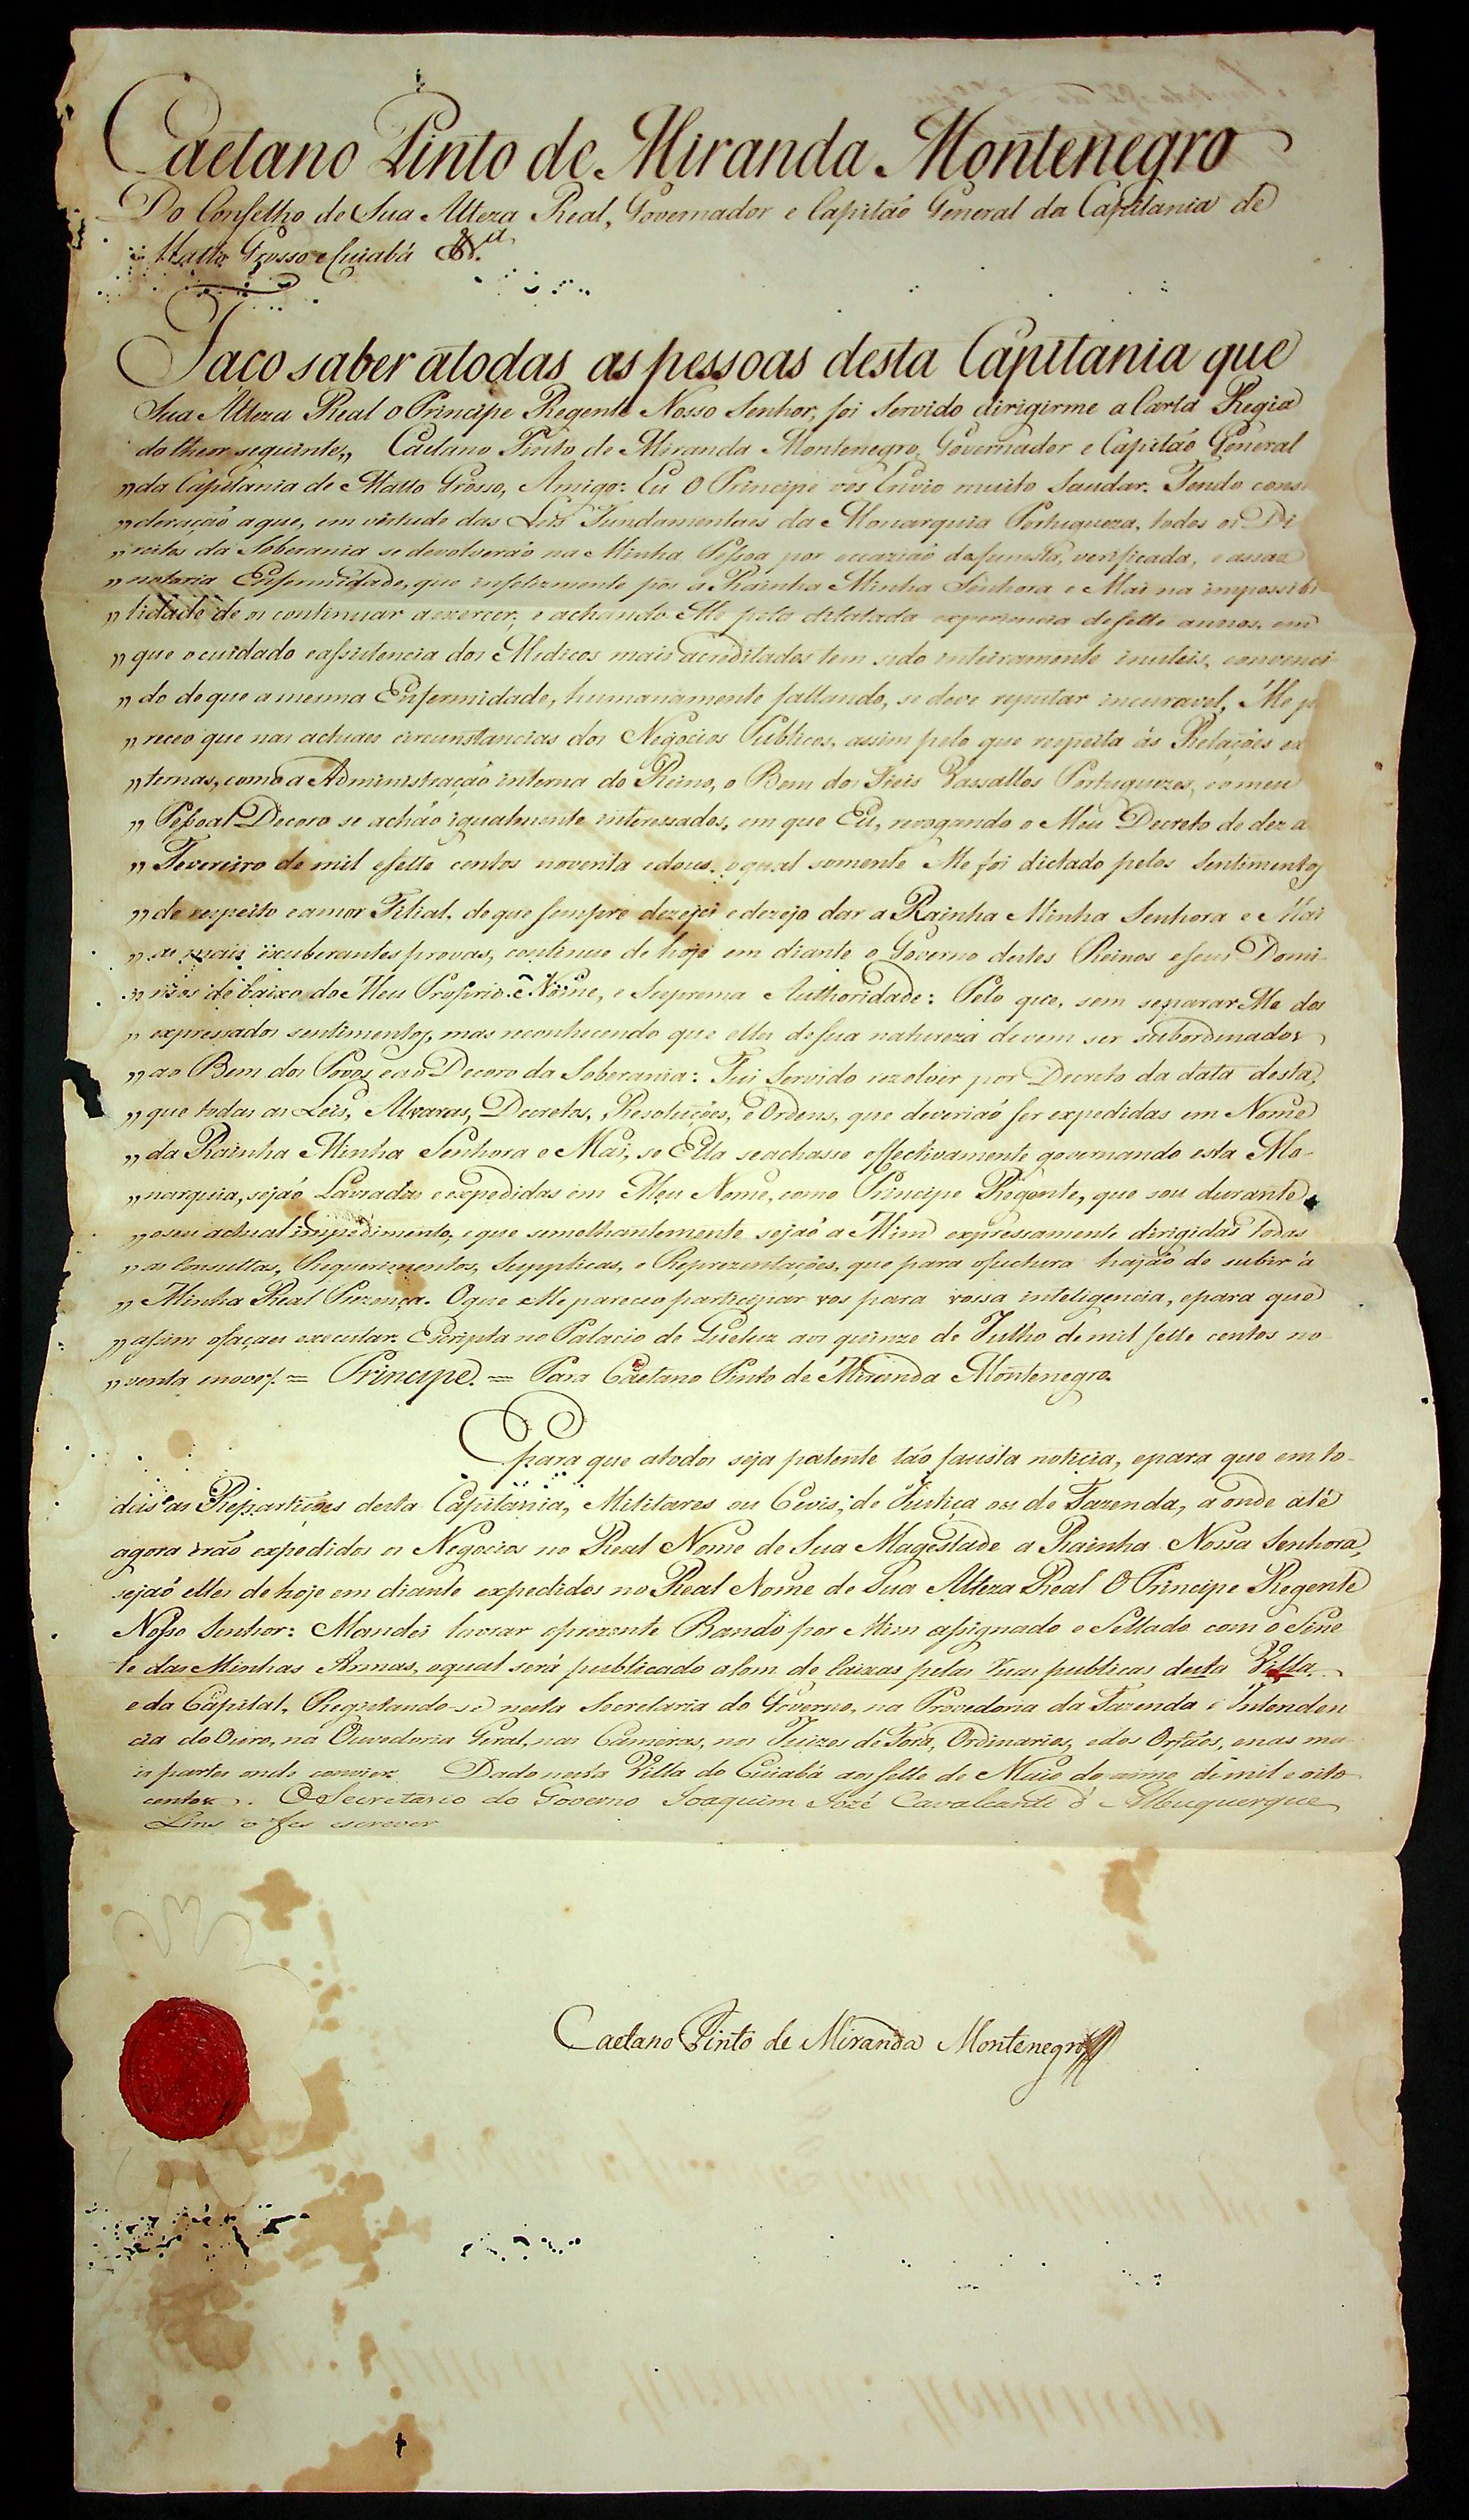 Caetano Pinto de Miranda Montenegro
Do Conselho de Sua Alteza Real, Governador e Capitão General da Capitania de
Matto Grosso e Cuiabá &.ª
Faco saber atodas as pessoas desta Capitania que
Sua Alteza Real o Principe Regente Nosso Senhor, foi Servido dirigirme a Carta Regia
do theor seguinte,, Caetano Pinto de Miranda Montenegro, Governador e Capitão General
,, da Capitania de Matto Grosso, Amigo: Eu O Principe vos Envio muito Saudar. Tendo consi
,, deração aque, em virtude das Leis Fundamentaes da Monarquia Portugueza, todos os Di
,, reitos da Soberania se devolverão na Minha Pessoa por occazião da funesta, verificada, e assaz
,, notoria Enfermidade, que infelizmente pôs a Rainha Minha Senhora e Mai na impossibi
,, lidade de os continuar a exercer; e achando-Me pela dilatada experiencia de sette annos, em
,, que o cuidado e assistencia dos Medicos mais acreditados tem sido inteiramente inuteis, convenci
,, do de que a mesma Enfermidade, humanamente fallando, se deve reputar incuravel, Me p
,, receo que nas actuaes circunstancias dos Negocios Publicos, assim pelo que respeita ás Relações ex
,, ternas, como a Administração interna do Reino, o Bem dos Fieis Vassallos Portuguezes, e o meu
,, Pessoal Decoro se achão igualmente interessados, em que Eu, revogando o Meu Decreto de dez a
,, Fevereiro de mil e sette centos noventa e dous, o qual somente Me foi dictado pelos Sentimentos
,, de respeito e amor Filial, de que sempre dezejei e dezejo dar a Rainha Minha Senhora e Mai
,, as mais exuberantes provas, continue de hoje em diante o Governo destes Reinos e seus Domi-
,, nios de baixo do Meu Proprio Nome, e Suprema Authoridade: Pelo que, sem separar-Me dos
,, expressados sentimentos, mas reconhecendo que elles de sua natureza devem ser subordinados
,, ao Bem dos Povos e ao Decoro da Soberania: Fui Servido rezolver por Decreto da data desta,
,, que todas as Leis, Alvaras, Decretos, Resoluções, e Ordens, que deverião ser expedidas em Nome
,, da Rainha Minha Senhora e Mai, se Ella se achasse effectivamente governando esta Mo-
,, narquia, sejão Lavradas e expedidas em Meu Nome, como Principe Regente, que sou durante
,, o seu actual impedimento, e que semelhantemente sejão a Mim expressamente dirigidas todas
,, as Consultas, Requerimentos, Supplicas, e Reprezentações, que para o futuro hajão de subir á
,, Minha Real Prezença. O que Me pareceo participar vos para vossa inteligencia, e para que
,, assim o façaes executar. Escripta no Palacio de Queluz aos quinze de Julho de mil sette centos no-
,, venta e nove,, = Principe. = Para Caetano Pinto de Miranda Montenegro.
E para que atodos seja patente tão fausta noticia, e para que em to-
das as Repartições desta Capitania, Militares ou Civis; de Justiça ou de Fazenda, a onde até
agora erão expedidos os Negocios no Real Nome de Sua Magestade a Rainha Nossa Senhora,
sejão elles de hoje em diante expedidos no Real Nome de Sua Alteza Real O Principe Regente
Nosso Senhor: Mandei lavrar o prezente Bando por Mim assignado e Sellado com o Sine
te das Minhas Armas, o qual será publicado a som de Caixas pelas ruas publicas desta Villa,
e da Capital, Registando-se nesta Secretaria do Governo, na Provedoria da Fazenda e Intenden
cia do Ouro, na Ouvedoria Geral, nas Cameras, nos Juizos de Fora, Ordinarios, e dos Orfãos, e nas ma
is partes onde convier. Dado nesta Villa do Cuiabá aos sette de Maio do anno de mil e oito
centos. O Secretario do Governo Joaquim Jozé Cavalcanti d'Albuquerque
Lins o fes escrever
Caetano Pinto de Miranda Montenegro